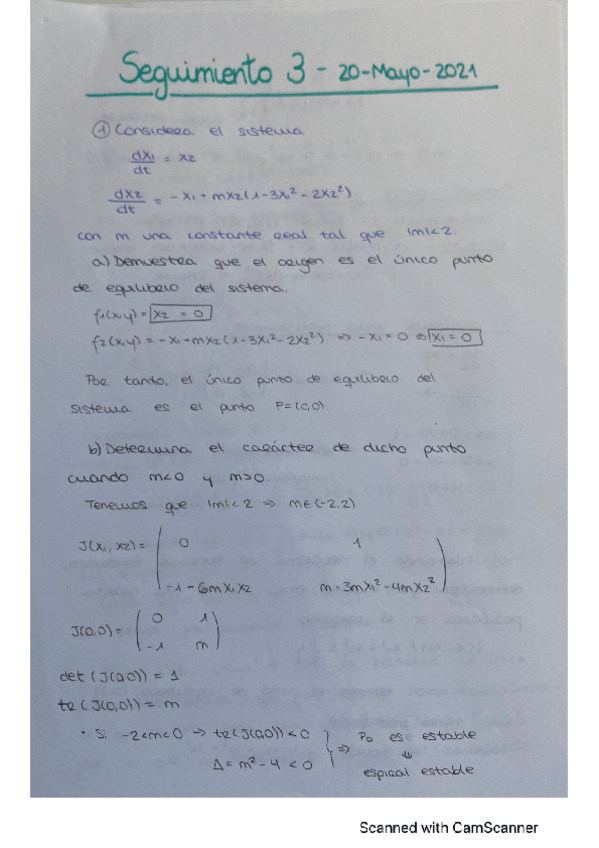 Seguimiento 3 - 20-Mayo-2021
① Considera el sistema
dx1/dt = x2
dx2/dt = -x1 + mx2(1-3x1²-2x2²)
con m una constante real tal que |m|<2.
a) Demuestra que el origen es el único punto
de equilibrio del sistema.
f1(x,y) = x2 = 0
f2(x,y) = -x1+mx2(1-3x1²-2x2²) => -x1=0 => x1=0
Por tanto, el único punto de equilibrio del
sistema es el punto P=(0,0)
b) Determina el carácter de dicho punto
cuando m<0 y m>0.
Tenemos que |m|<2 => m∈(-2,2)
J(x1, x2) = ( 0 1
-1-6mx1x2 m-3mx1²-4mx2² )
J(0,0) = ( 0 1
-1 m )
det(J(0,0)) = 1
tr(J(0,0)) = m
· Si -2<m<0 → tr(J(0,0))<0 } => Po es estable
Δ=m²-4<0 ⇓
espiral estable
Scanned with CamScanner